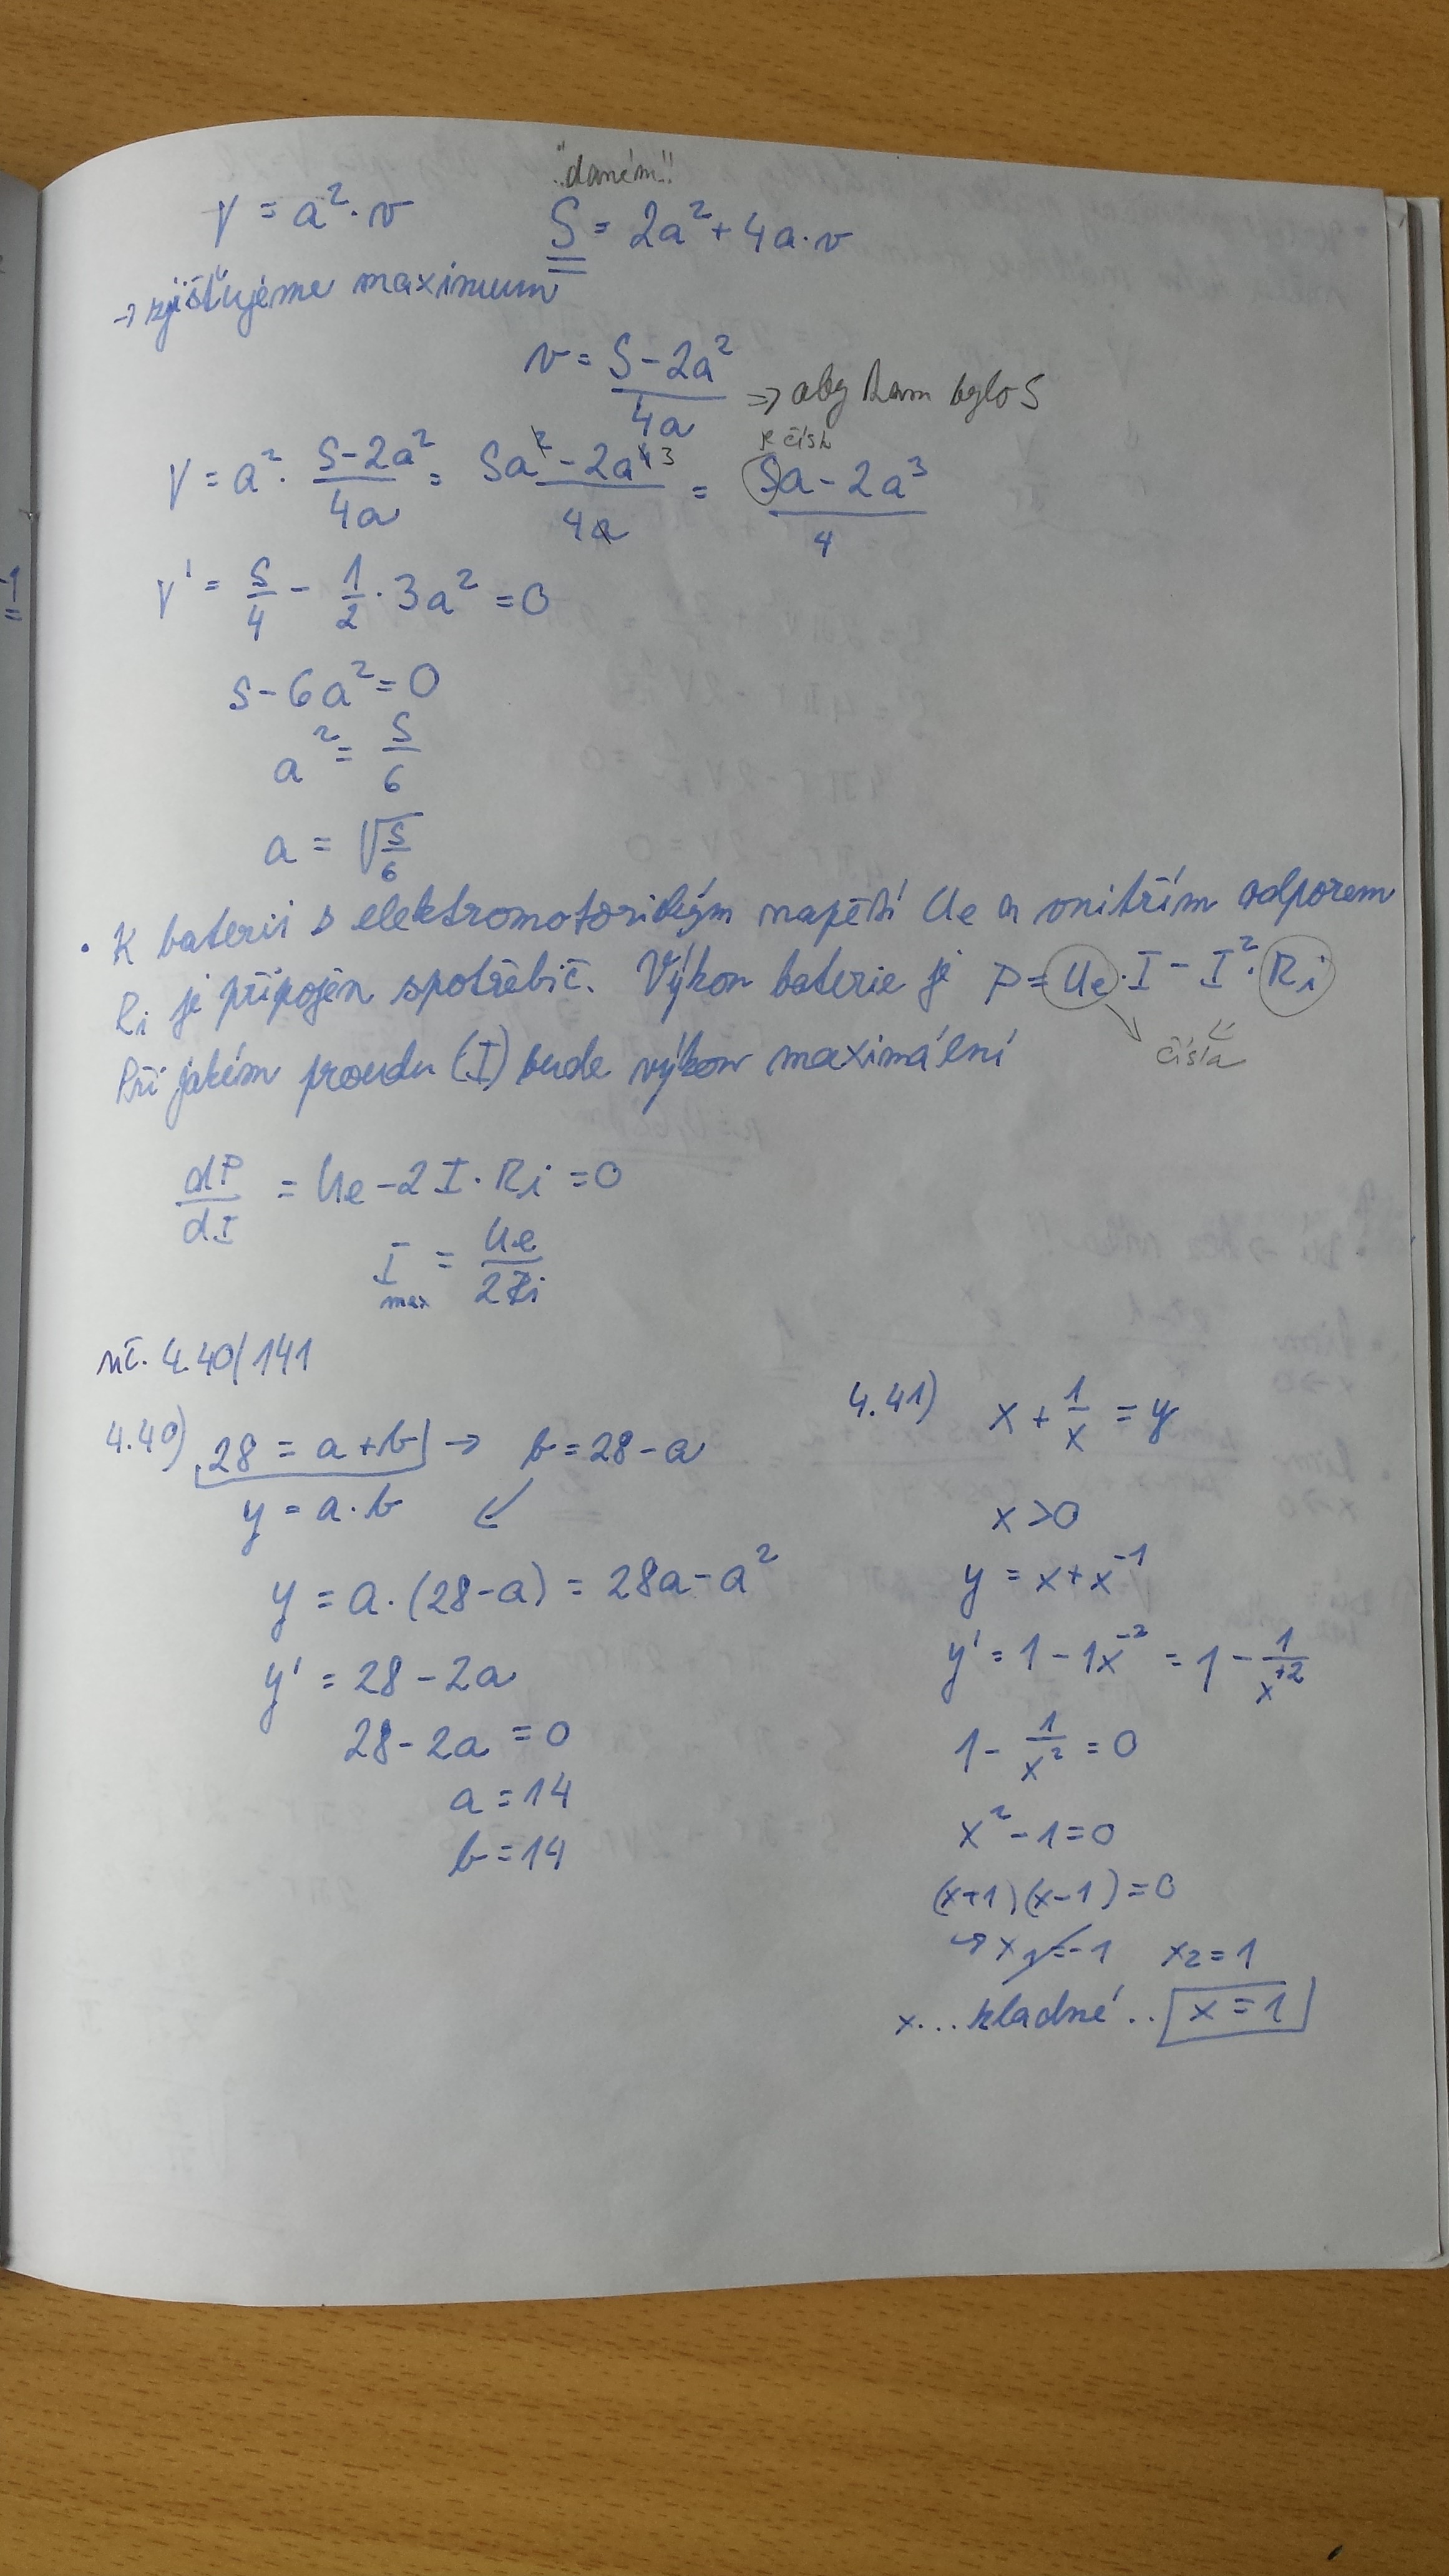 "daném"
V = a²·v    S = 2a² + 4a·v
→ zjišťujeme maximum
v = (S - 2a²)/4a ⇒ aby tam bylo S
V = a² · (S - 2a²)/4a = (Sa² - 2a⁴ ³)/4a = (Sa - 2a³)/4
V' = S/4 - 1/2 · 3a² = 0
S - 6a² = 0
a² = S/6
a = √(S/6)
• K baterii s elektromotorickým napětí Ue a vnitřím odporem
Ri je připojen spotřebič. Výkon baterie je P = Ue·I - I²·Ri
čísla
Při jakém proudu (I) bude výkon maximální
dP/dI = Ue - 2I·Ri = 0
I max = Ue/2Ri
uč. 4.40/141
4.40) 28 = a + b → b = 28 - a
y = a·b
y = a·(28-a) = 28a - a²
y' = 28 - 2a
28 - 2a = 0
a = 14
b = 14
4.41) x + 1/x = y
x > 0
y = x + x⁻¹
y' = 1 - 1x⁻² = 1 - 1/x⁺²
1 - 1/x² = 0
x² - 1 = 0
(x+1)(x-1) = 0
↪ x₁ = -1  x₂ = 1
x... kladné .. x = 1